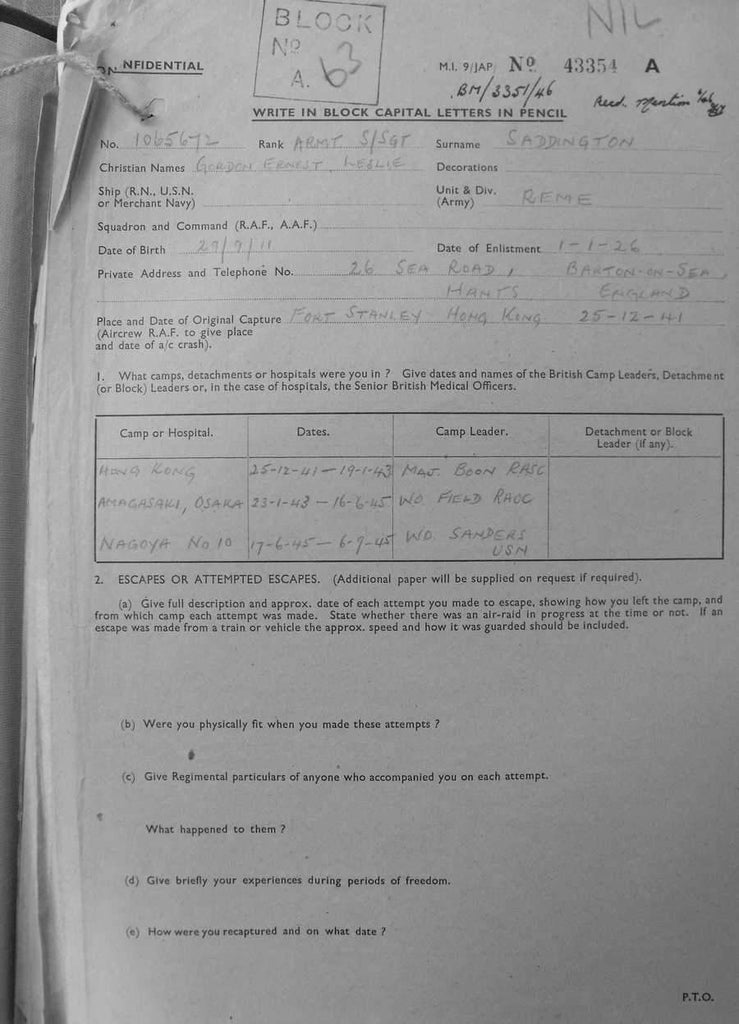 BLOCK
NIL
No
A. 63
NFIDENTIAL
M.I. 9/JAP No 43354 A
BM/3351/46
WRITE IN BLOCK CAPITAL LETTERS IN PENCIL
No. 1065672 Rank ARMT S/SGT Surname SADDINGTON
Christian Names GORDON ERNEST LESLIE Decorations
Ship (R.N., U.S.N. or Merchant Navy)
Unit & Div. (Army) REME
Squadron and Command (R.A.F., A.A.F.)
Date of Birth 29/9/11 Date of Enlistment 1-1-26
Private Address and Telephone No. 26 SEA ROAD, BARTON-ON-SEA,
HANTS ENGLAND
Place and Date of Original Capture FORT STANLEY HONG KONG 25-12-41
(Aircrew R.A.F. to give place
and date of a/c crash).
1. What camps, detachments or hospitals were you in ? Give dates and names of the British Camp Leaders, Detachment
(or Block) Leaders or, in the case of hospitals, the Senior British Medical Officers.
Camp or Hospital. Dates. Camp Leader. Detachment or Block Leader (if any).
HONG KONG 25-12-41 - 19-1-43 MAJ. BOON RASC
AMAGASAKI, OSAKA 23-1-43 - 16-6-45 WO FIELD RAOC
NAGOYA No 10 17-6-45 - 6-9-45 WO. SANDERS USN
2. ESCAPES OR ATTEMPTED ESCAPES. (Additional paper will be supplied on request if required).
(a) Give full description and approx. date of each attempt you made to escape, showing how you left the camp, and
from which camp each attempt was made. State whether there was an air-raid in progress at the time or not. If an
escape was made from a train or vehicle the approx. speed and how it was guarded should be included.
(b) Were you physically fit when you made these attempts ?
(c) Give Regimental particulars of anyone who accompanied you on each attempt.
What happened to them ?
(d) Give briefly your experiences during periods of freedom.
(e) How were you recaptured and on what date ?
P.T.O.